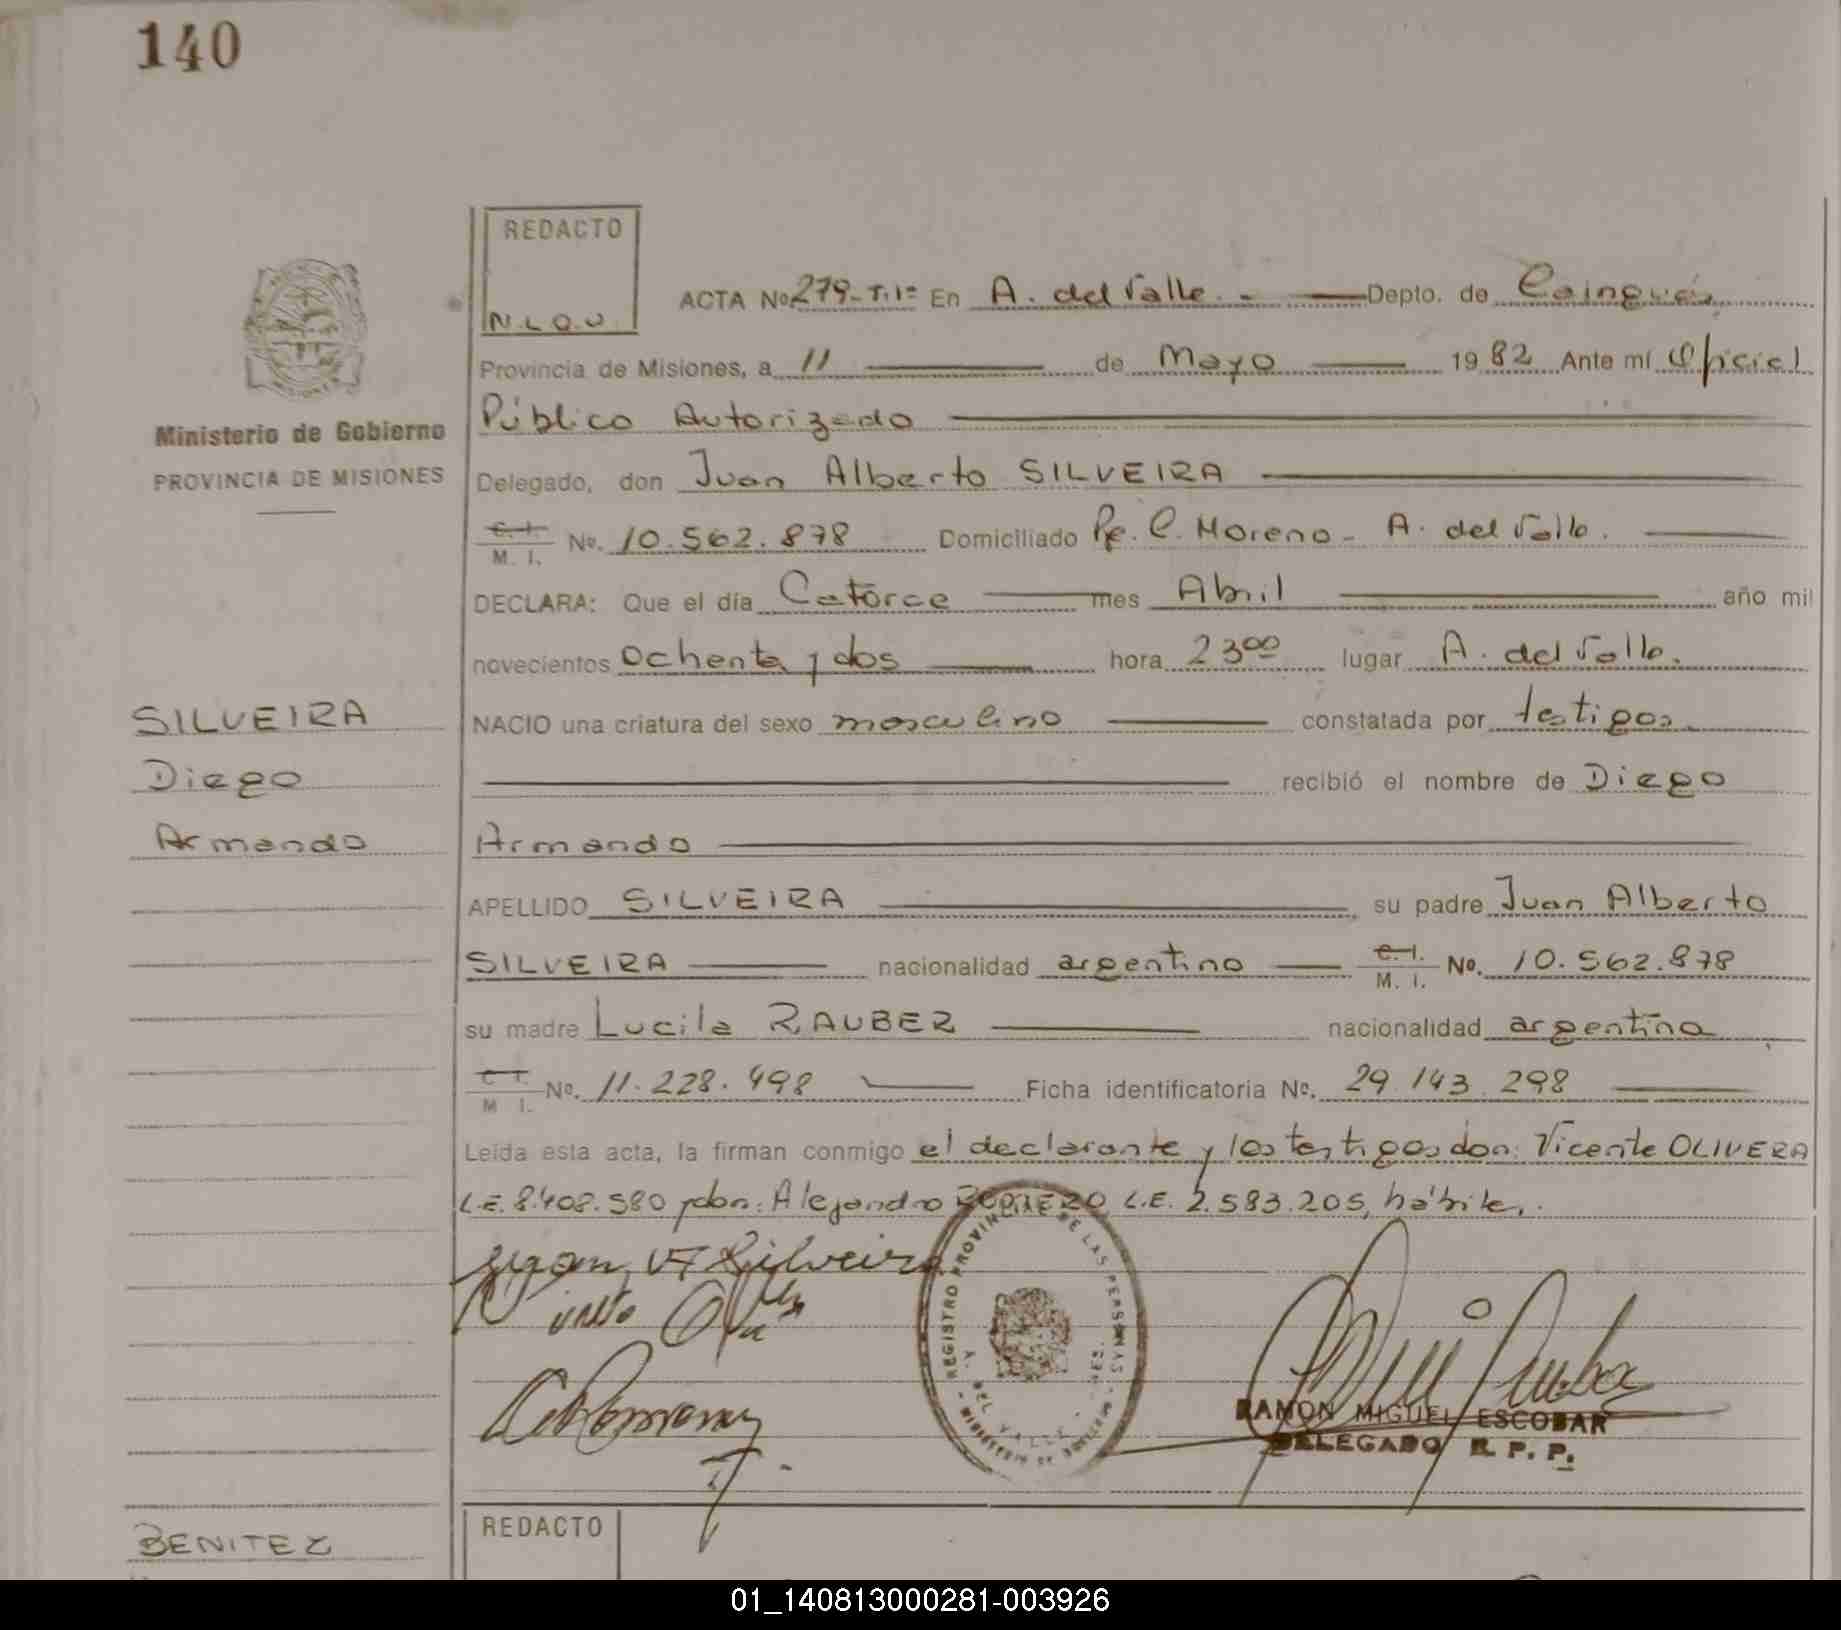 140
REDACTO
N.L.O.U.
ACTA Nº 279-T.1º En A. del Valle. - Depto. de Cainguás
Provincia de Misiones, a 11 de Mayo 1982 Ante mí Oficial
Público Autorizado
Ministerio de Gobierno
PROVINCIA DE MISIONES
Delegado, don Juan Alberto SILVEIRA
C. I.
M. I. Nº. 10.562.878 Domiciliado Pje. C. Moreno - A. del Valle.
DECLARA: Que el día Catorce mes Abril año mil
novecientos ochenta y dos hora 23⁰⁰ lugar A. del Valle.
SILVEIRA
Diego
Armando
NACIO una criatura del sexo masculino constatada por testigos
recibió el nombre de Diego
Armando
APELLIDO SILVEIRA su padre Juan Alberto
SILVEIRA nacionalidad argentino C. I.
M. I. Nº. 10.562.878
su madre Lucila RAUBER nacionalidad argentina
C. I.
M I. Nº. 11.228.498 Ficha identificatoria Nº. 29.143.298
Leída esta acta, la firman conmigo el declarante y los testigos don: Vicente OLIVERA
L.E. 8.408.580 y don: Alejandro L.E. 2.583.205, hábiles.
Juan A Silveira
REGISTRO PROVINCIAL DE LAS PERSONAS
A. DEL VALLE - MNES.
MINISTERIO DE GOBIERNO
RAMON MIGUEL ESCOBAR
DELEGADO R. P. P.
BENITEZ
REDACTO
01_140813000281-003926